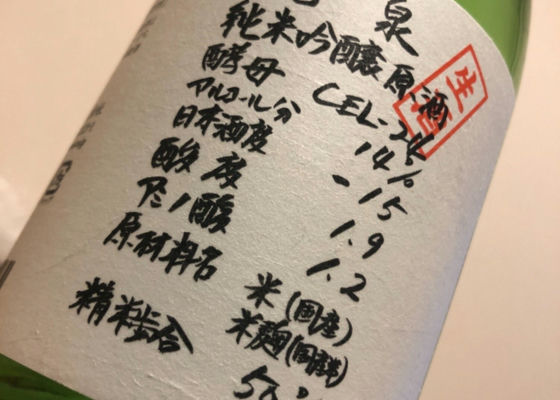 泉
純米吟醸原酒
生酒
酵母 CEL-24
アルコール分 14%
日本酒度 -15
酸度 1.9
アミノ酸 1.2
原材料名 米(国産)
米麹(国産米)
精米歩合 50